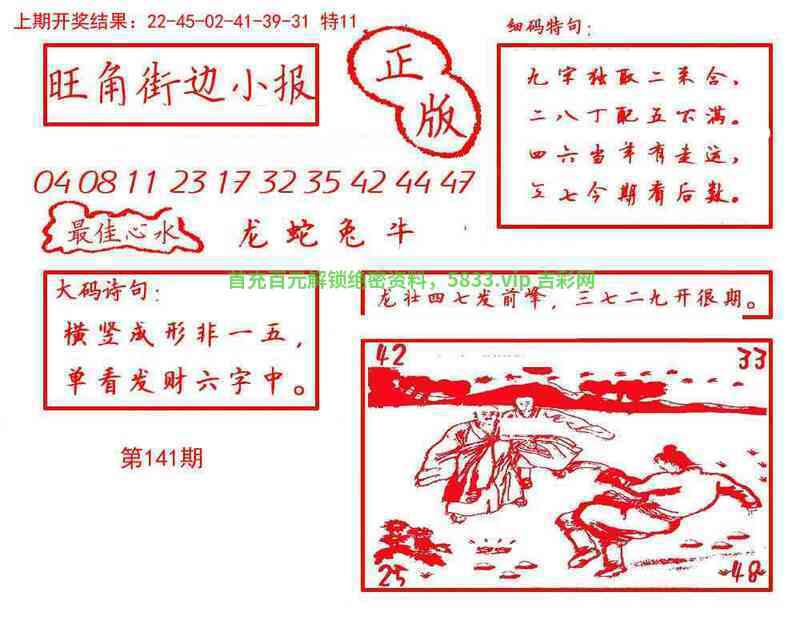 上期开奖结果：22-45-02-41-39-31 特11
旺角街边小报
正版
细码特句：
九字独取二来合，
二八丁配五下满。
四六当羊有走运，
三七今期看后数。
04 08 11 23 17 32 35 42 44 47
最佳心水
龙蛇兔牛
首充百元解锁绝密资料，5833.vip 吉彩网
大码诗句：
横竖成形非一五，
单看发财六字中。
龙壮四七发前峰，三七二九开很期。
42
33
25
48
第141期